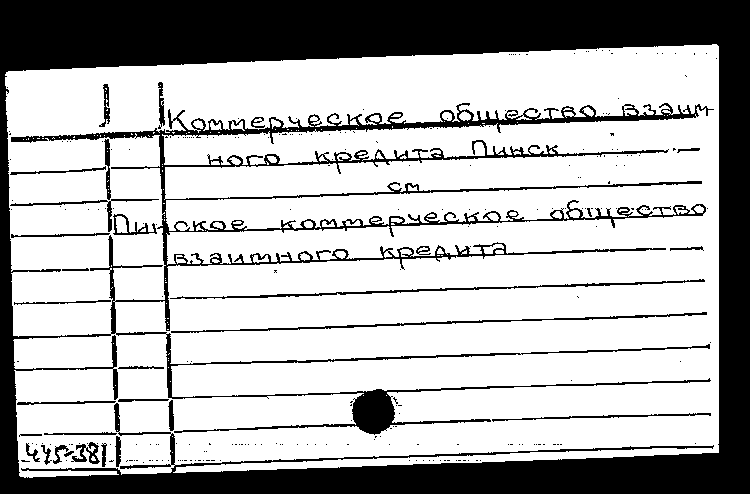 Коммерческое общество взаим
ного кредита Пинск
см
Пинское коммерческое общество
взаимного кредита
445-381